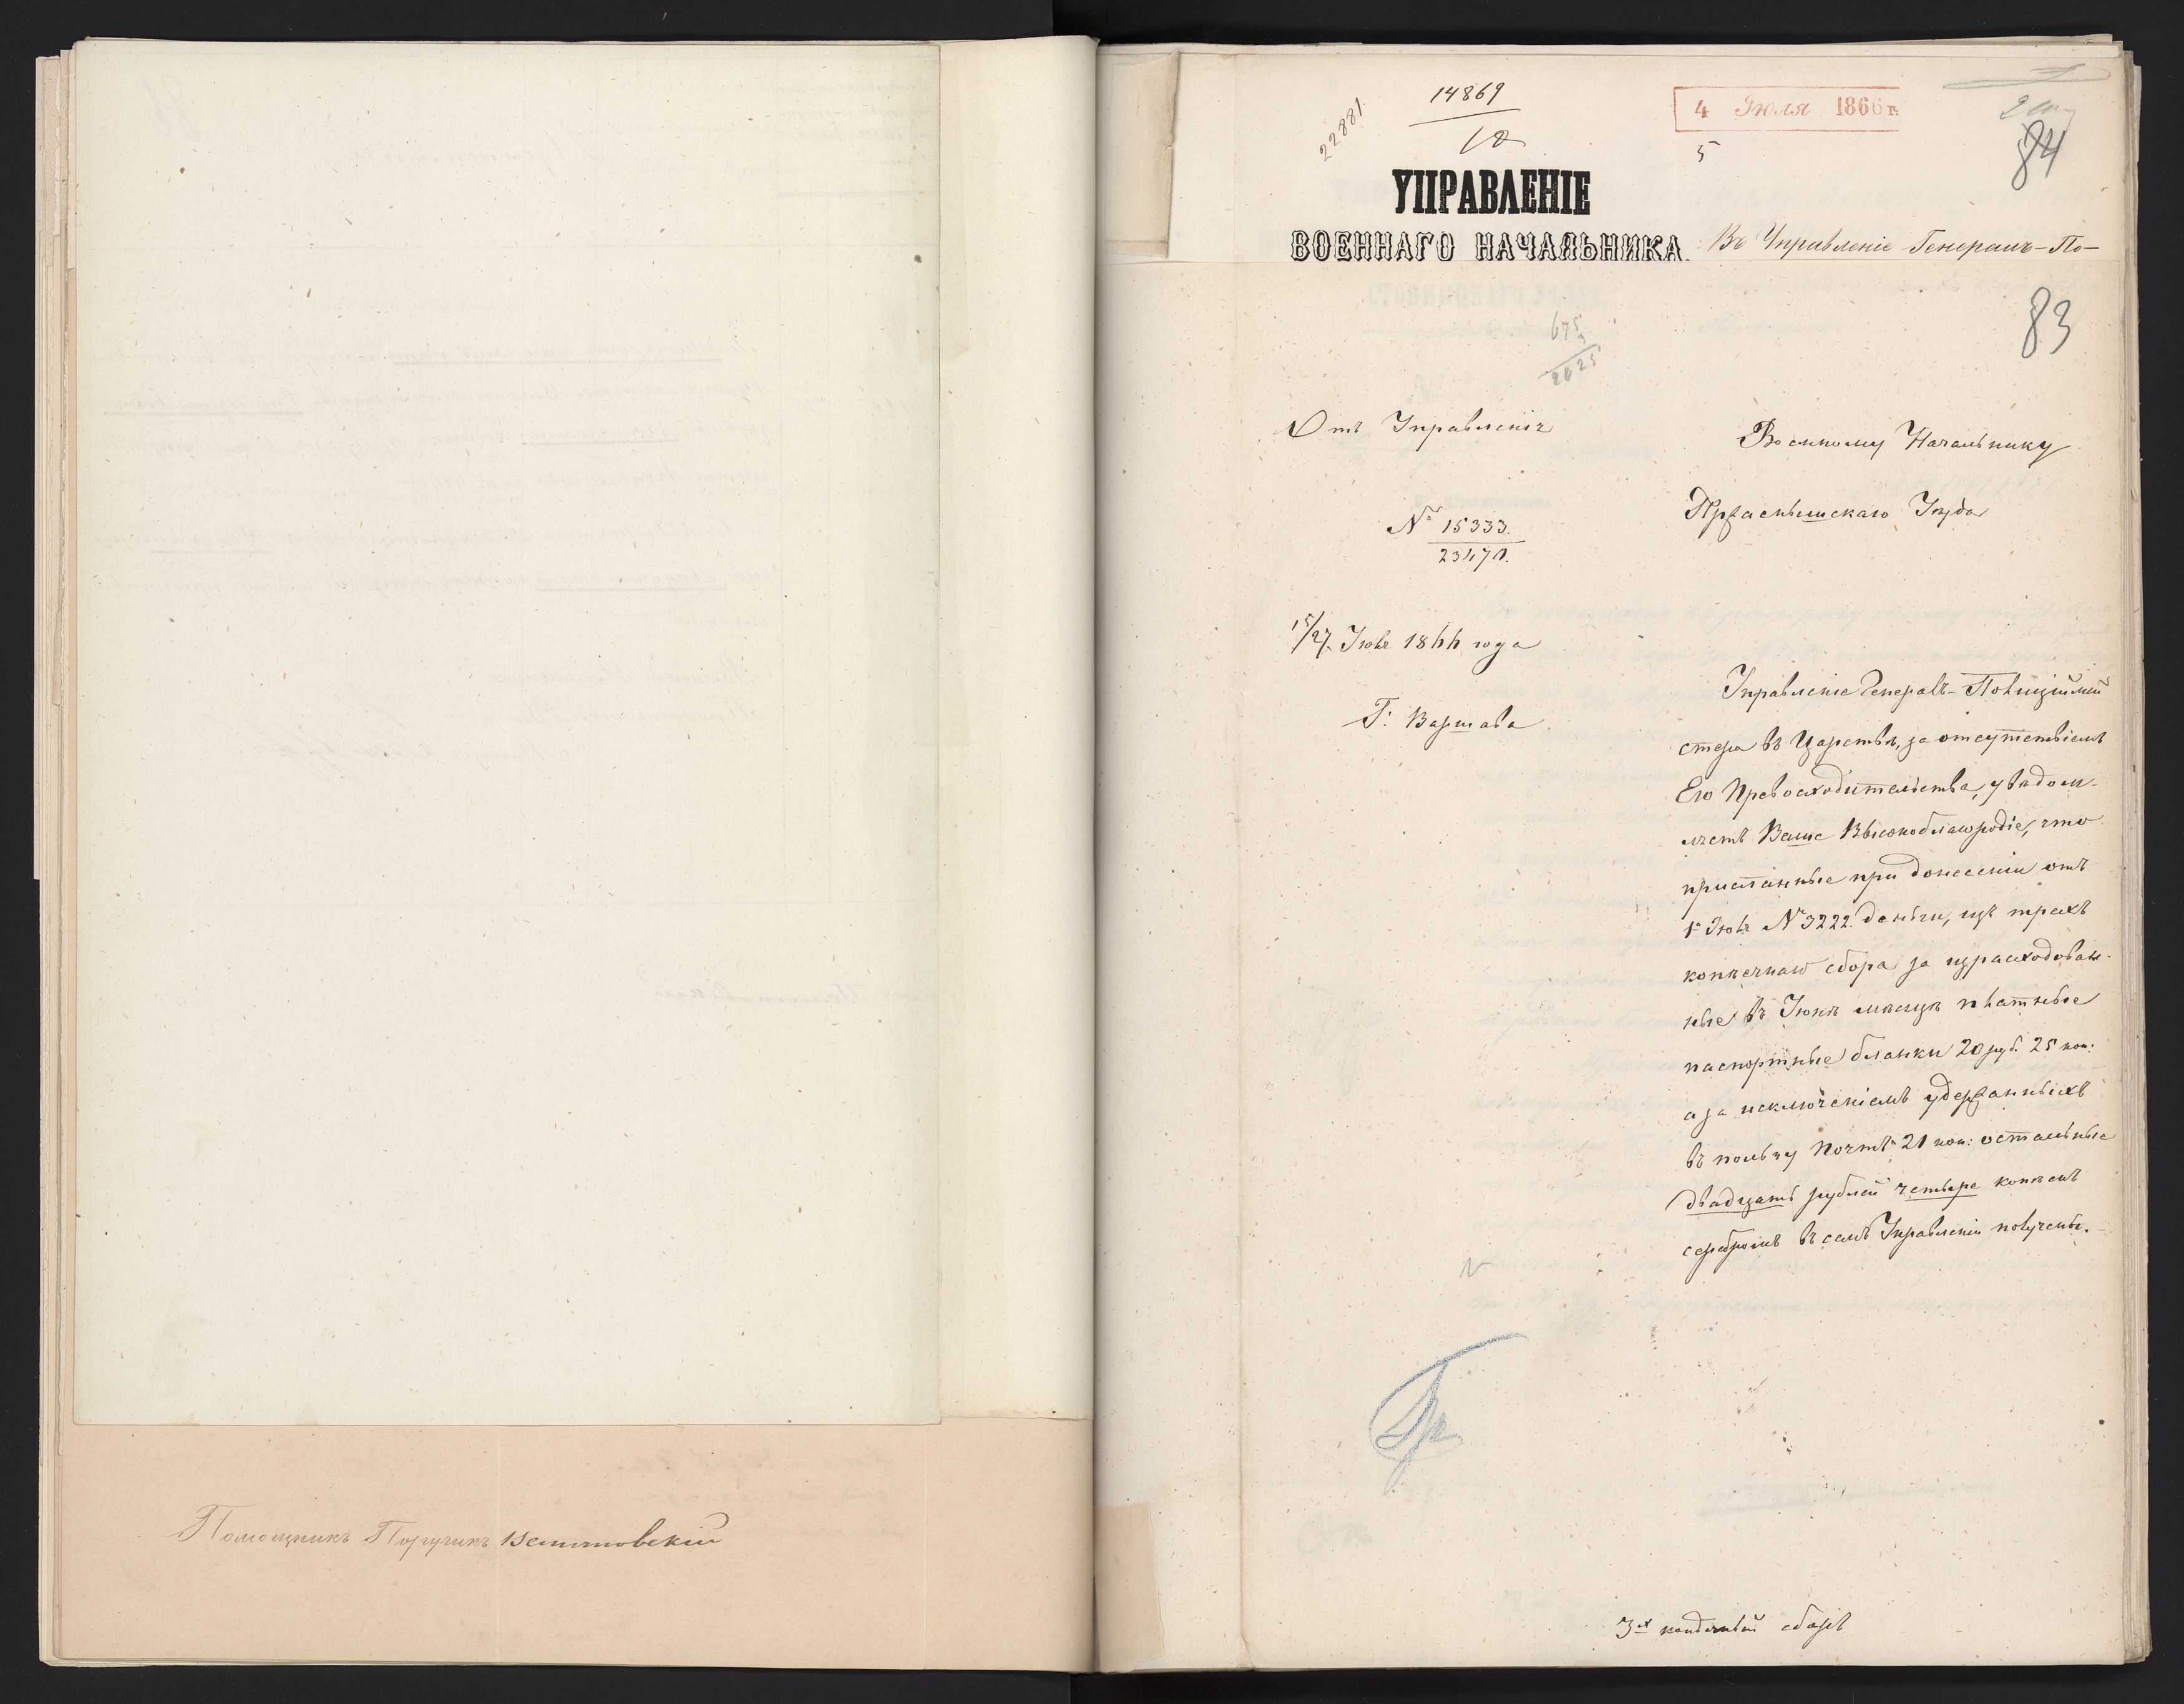 Помощникъ Поручикъ
22881
14869
18
4 Іюля 1866 г.
5
84
УПРАВЛЕНІЕ
ВОЕННАГО НАЧАЛЬНИКА
Въ Управленіе Генералъ-По-
83
675
3
2025
Отъ Управленія
№ 15333.
23470.
15/27 Іюля 1866 года
Г. Варшава
Военному Начальнику
Пржаснышскаго Уѣзда
Управленіе Генералъ-Полиціймей
стера въ Царствѣ, за отсутствіемъ
Его Превосходительства, увѣдом-
ляетъ Ваше Высокоблагородіе, что
присланные при донесеніи отъ
1го Іюля № 3222. деньги, изъ трехъ
копѣечнаго сбора за израсходован-
ные въ Іюнѣ мѣсяцѣ платные
паспортные бланки 20 руб. 25 коп:
а за исключеніемъ удержанныхъ
въ пользу Почтъ 21 коп: остальные
двадцать рублей четыре копѣекъ
серебромъ въ семъ Управленіи получены.
3х копѣечный сборъ